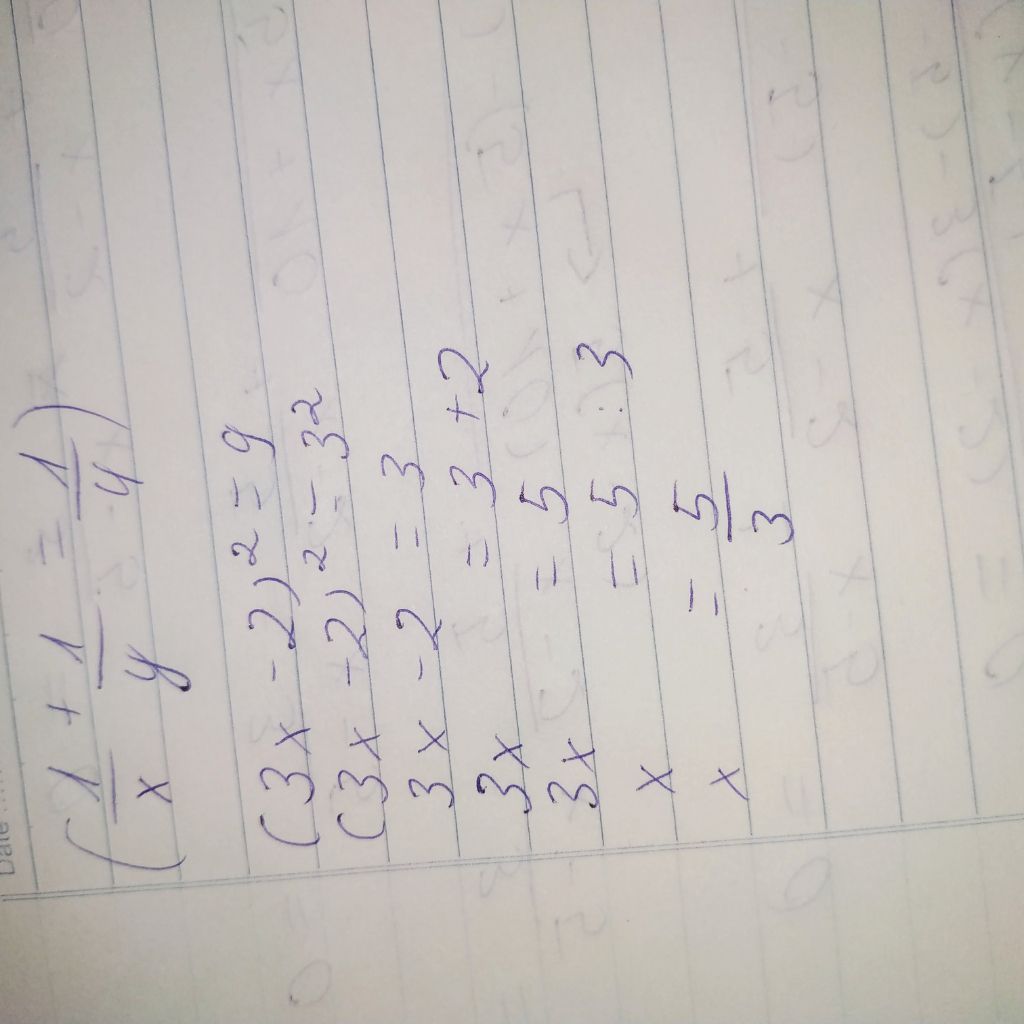 Date
(1/x + 1/y = 1/4)
(3x - 2)² = 9
(3x - 2)² = 3²
3x - 2 = 3
3x = 3 + 2
3x = 5
x = 5 : 3
x = 5/3